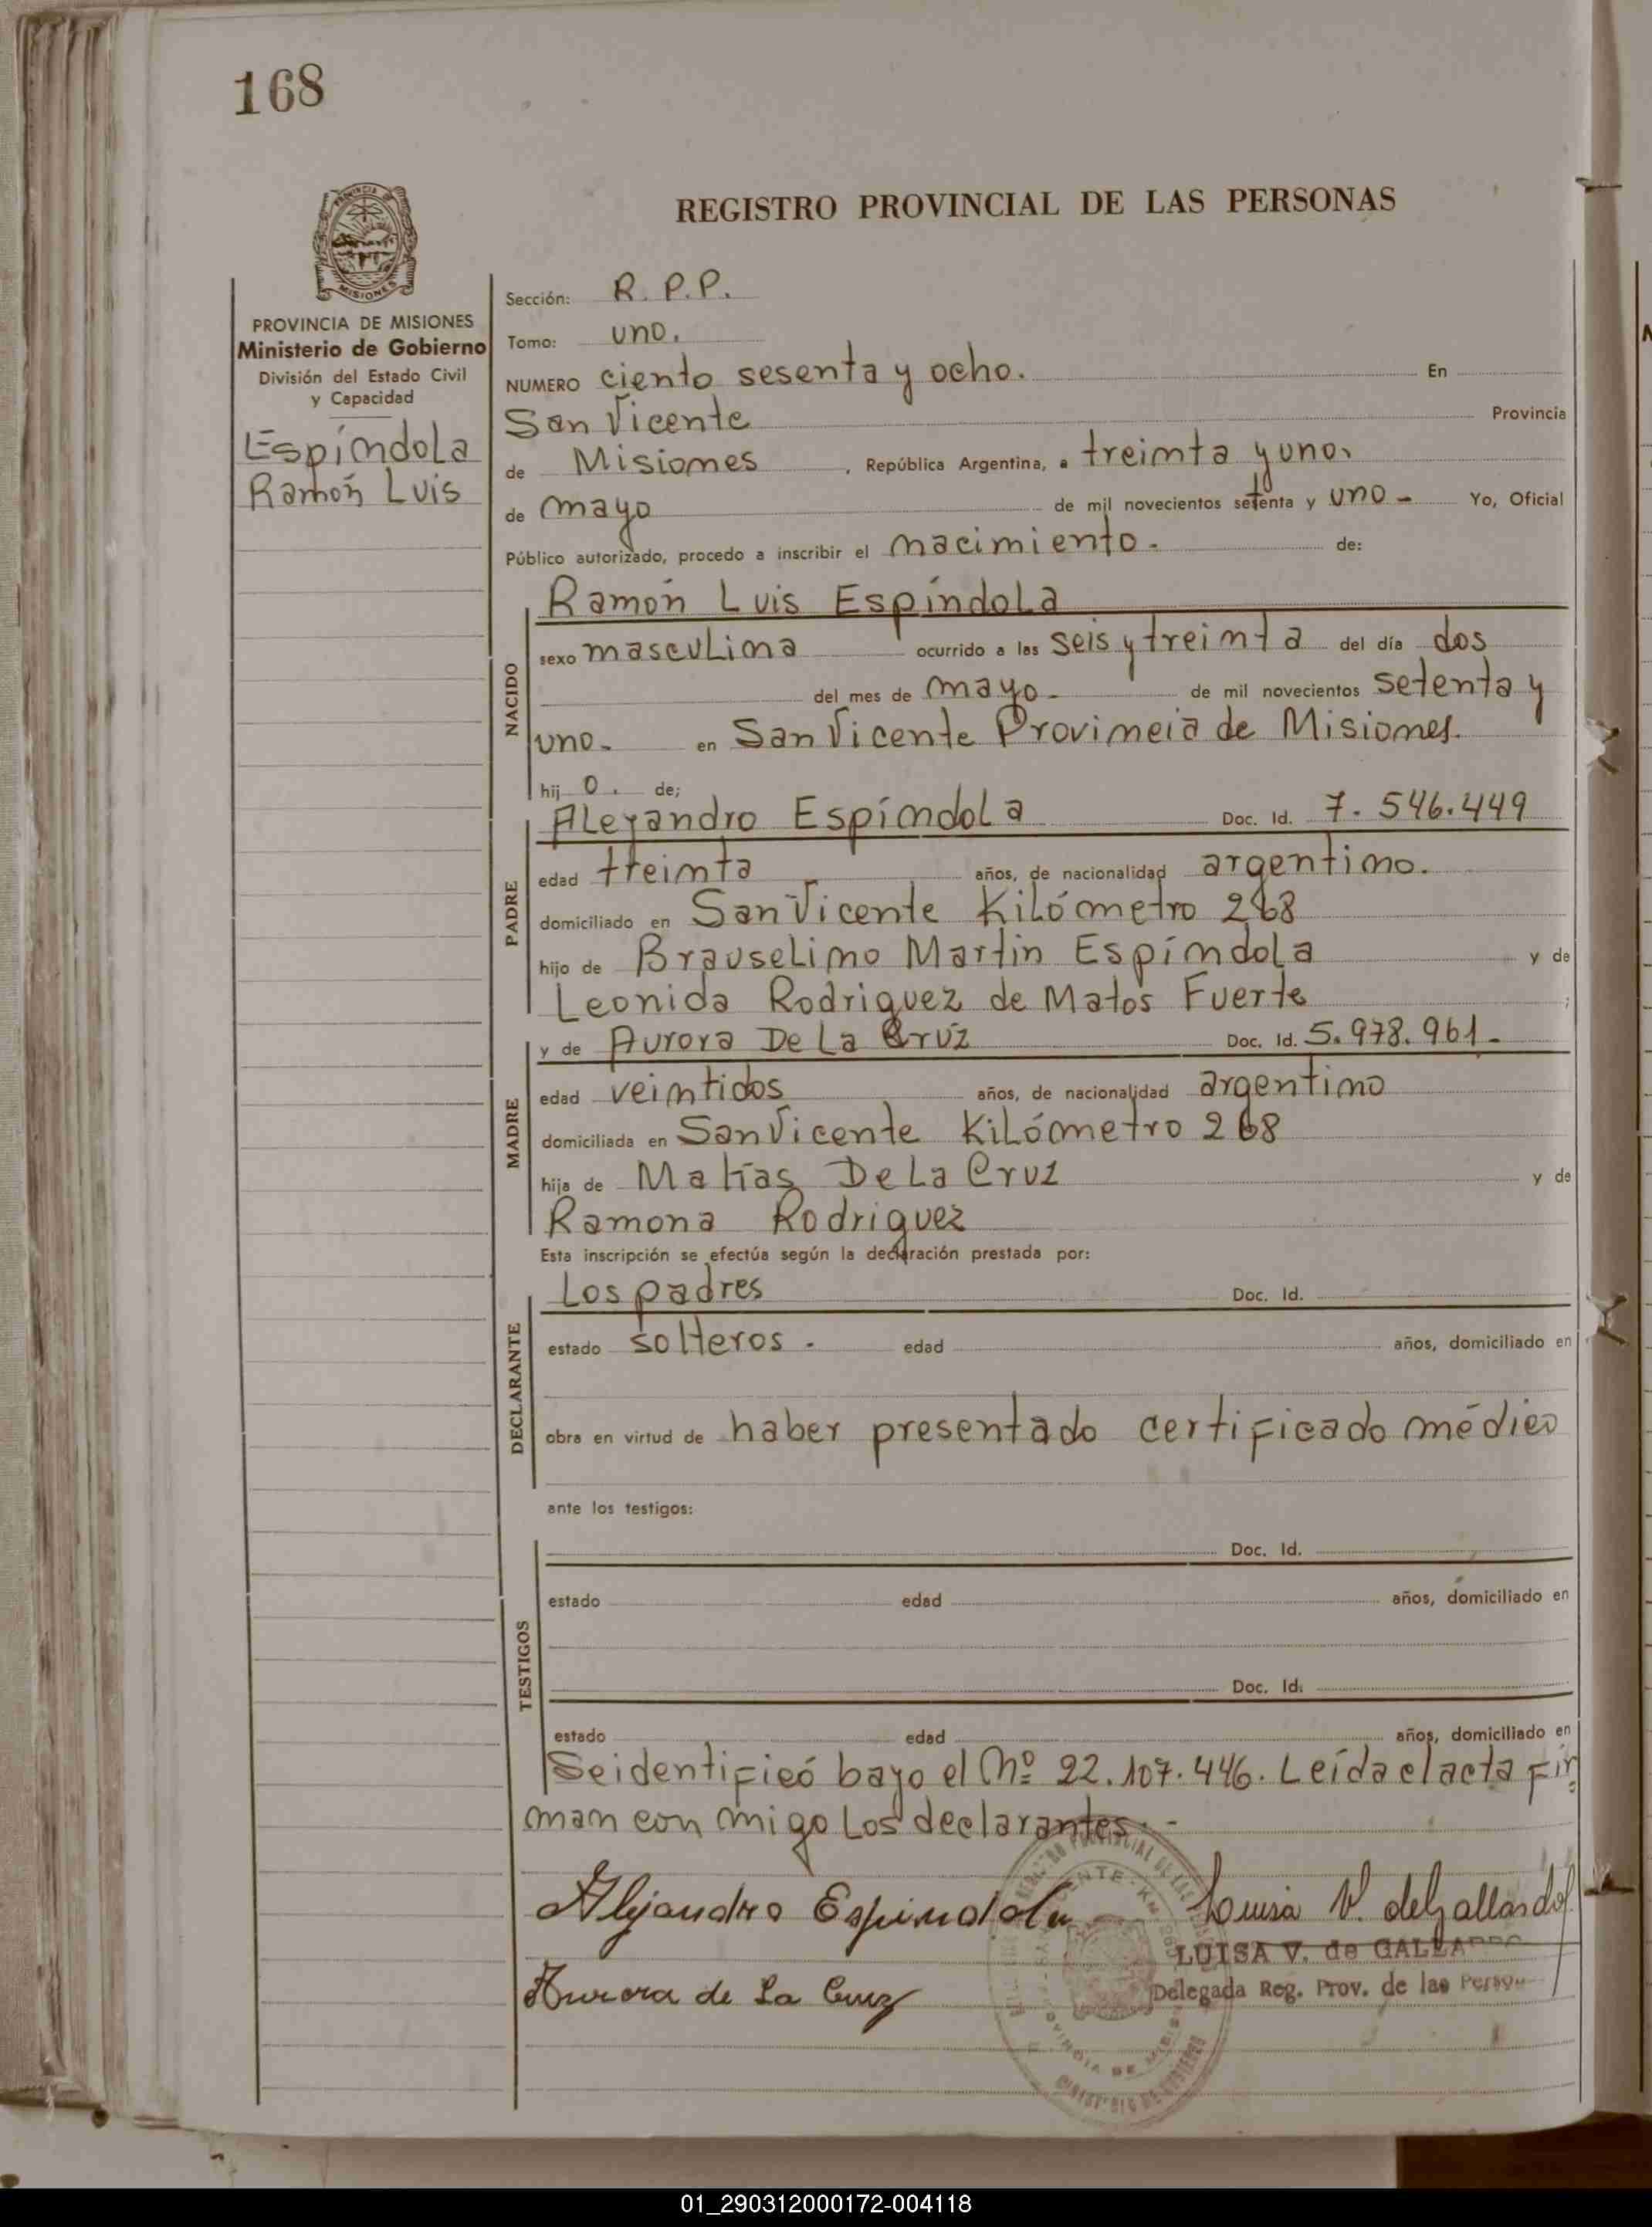 168
PROVINCIA
MISIONES
REGISTRO PROVINCIAL DE LAS PERSONAS
PROVINCIA DE MISIONES
Ministerio de Gobierno
División del Estado Civil
y Capacidad
Espíndola
Ramón Luis
Sección: R. P.P.
Tomo: uno.
NUMERO ciento sesenta y ocho. En
San Vicente Provincia
de Misiones, República Argentina, a treinta y uno.
de mayo de mil novecientos setenta y uno - Yo, Oficial
Público autorizado, procedo a inscribir el nacimiento. de:
Ramón Luis Espíndola
NACIDO
sexo masculina ocurrido a las seis y treinta del día dos
del mes de mayo - de mil novecientos setenta y
uno - en San Vicente Provincia de Misiones.
hij o. de;
PADRE
Aleyandro Espíndola Doc. Id. 7.546.449
edad treinta años, de nacionalidad argentino.
domiciliado en San Vicente Kilómetro 268
hijo de Brauselino Martin Espíndola y de
Leonida Rodriguez de Matos Fuerte ;
MADRE
y de Aurora De La Cruz Doc. Id. 5.978.961 -
edad veintidos años, de nacionalidad argentino
domiciliada en San Vicente Kilómetro 268
hija de Matías De La Cruz y de
Ramona Rodriguez
Esta inscripción se efectúa según la declaración prestada por:
DECLARANTE
Los padres Doc. Id.
estado solteros. edad años, domiciliado en
obra en virtud de haber presentado certificado médico
ante los testigos:
TESTIGOS
Doc. Id.
estado edad años, domiciliado en
Doc. Id.
estado edad años, domiciliado en
Se identificó bayo el Nº 22.107.446. Leída el acta fir
man con migo Los declarantes. -
Alejandro Espindola Luisa V. de Gallardo
LUISA V. de GALLARDO
Aurora de La Cruz Delegada Reg. Prov. de las Perso
01_290312000172-004118